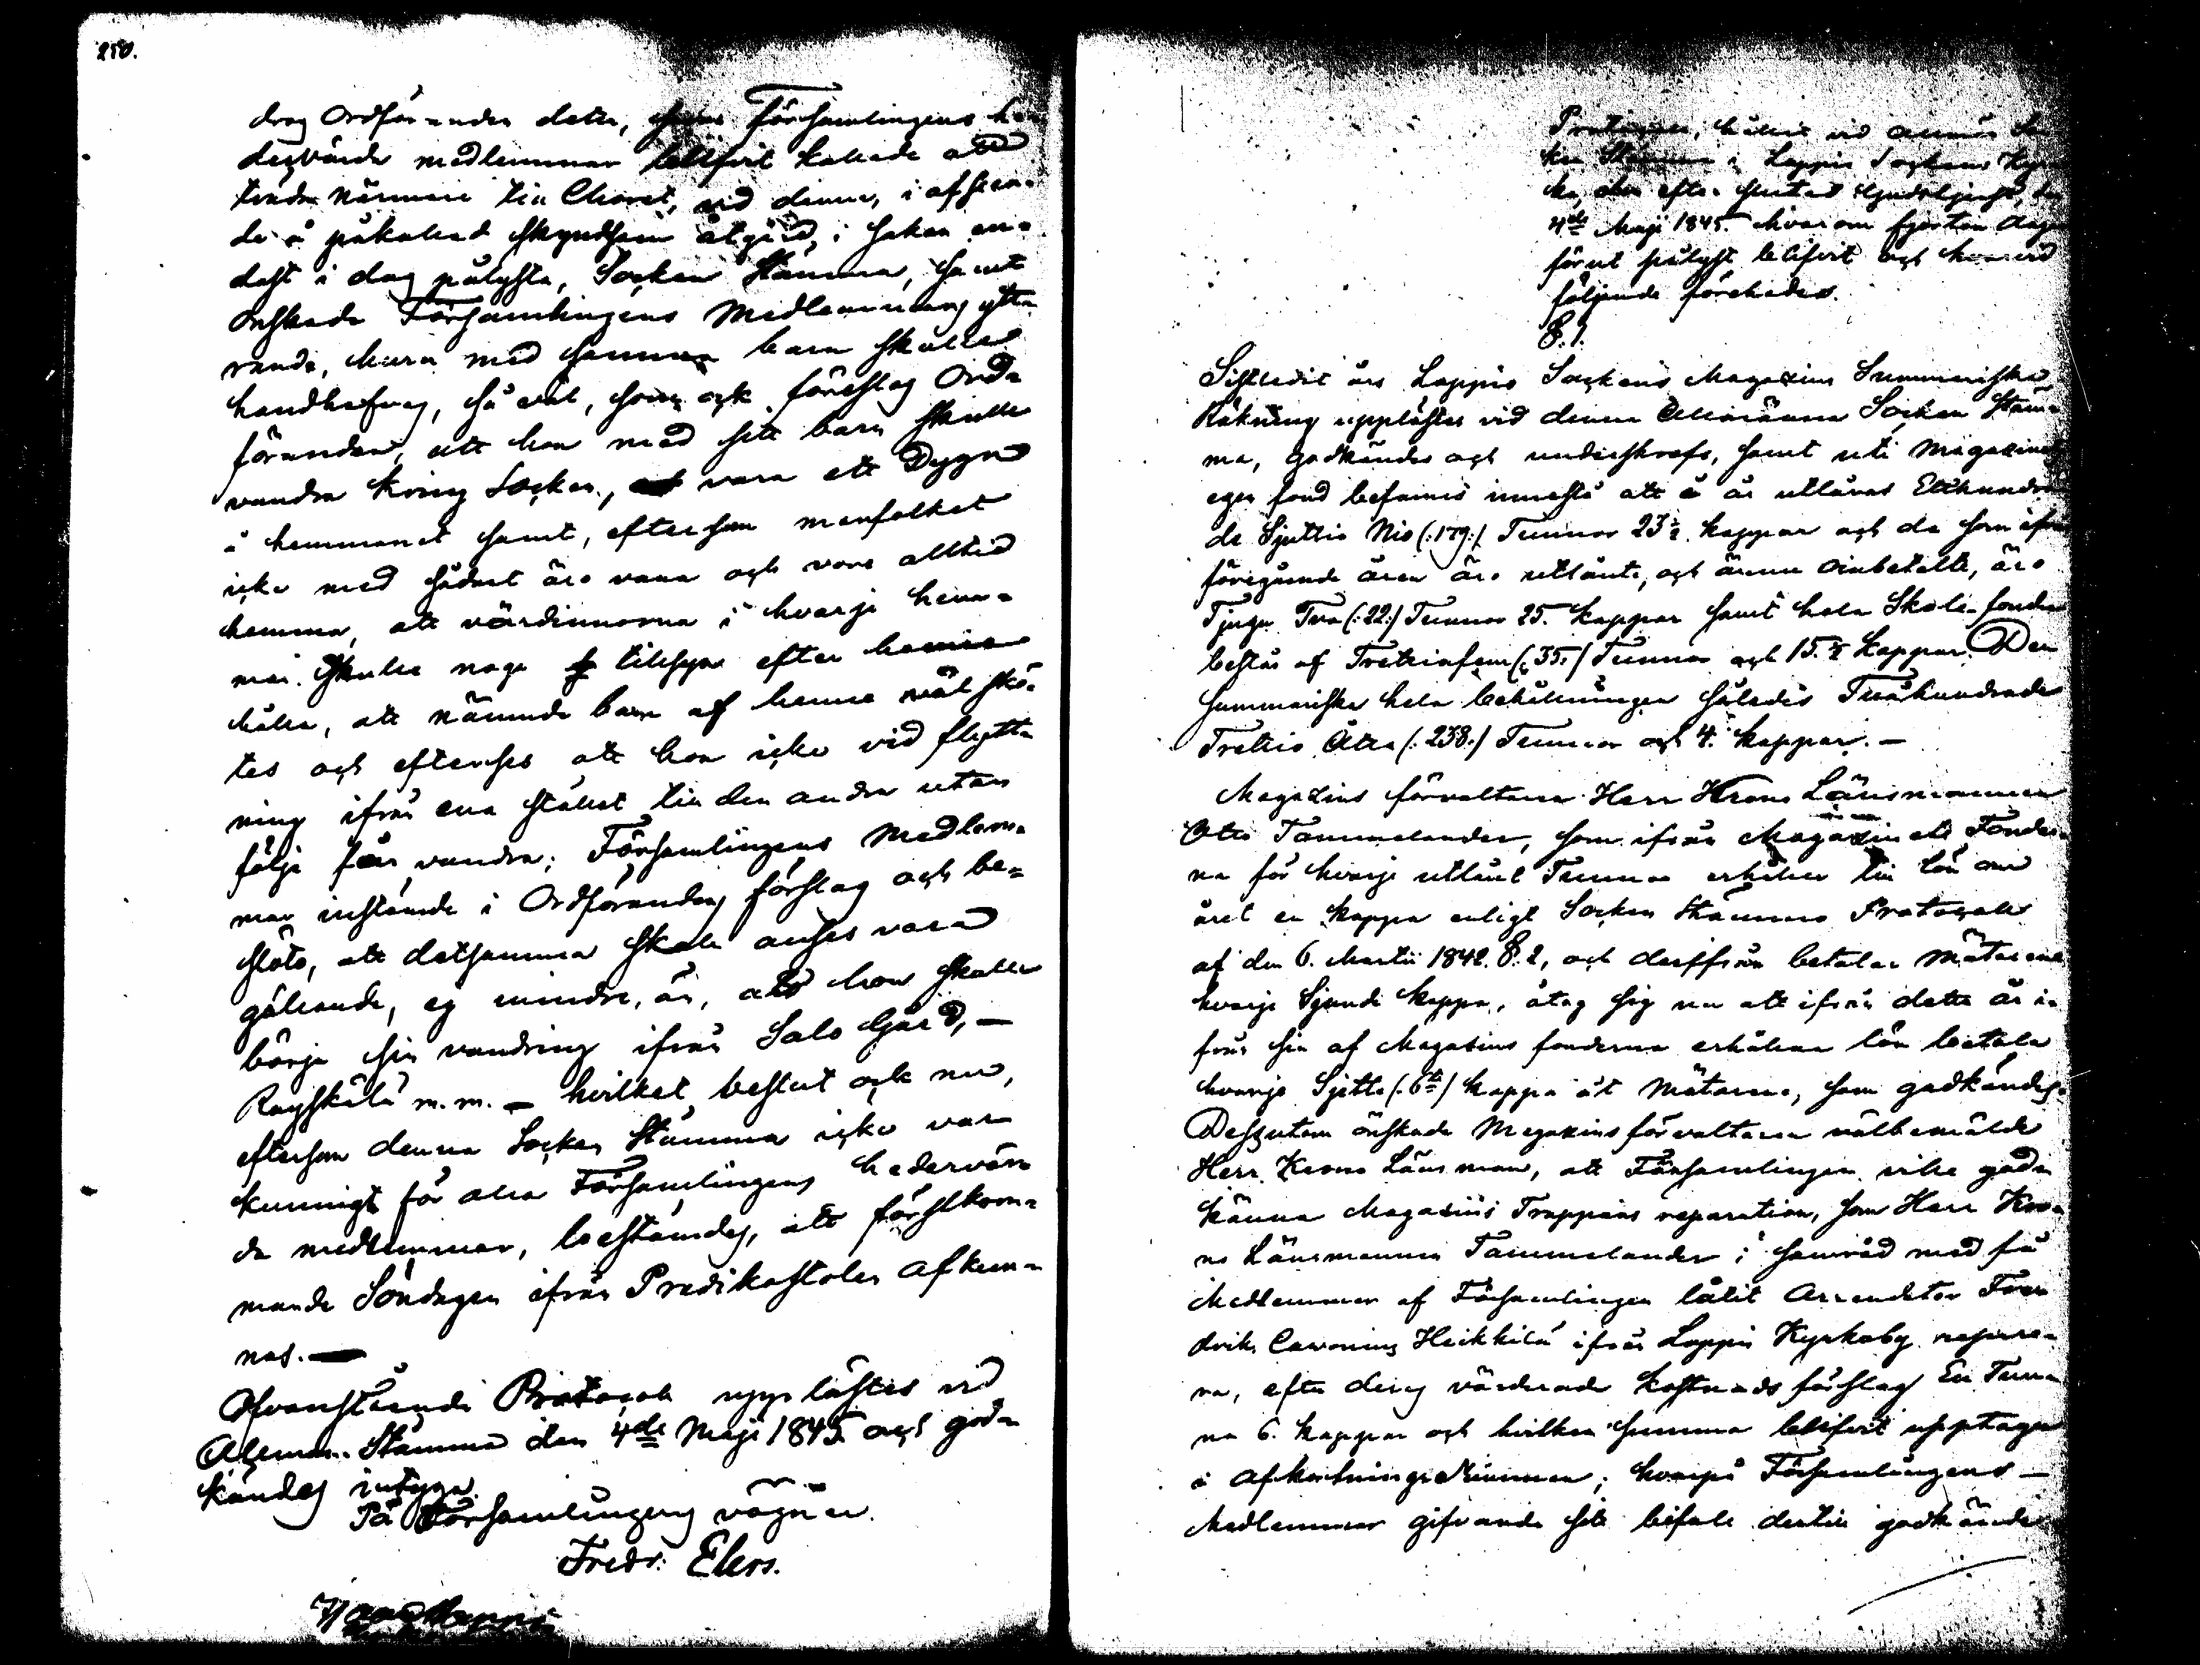 250.
drog Ordföranden detta, Församlingens he-
dersvärde medlemmar blifvit kallade att
träda närmare till Choret, vid denna, i afseen-
de å påkallad skyndsam åtgärd, i saken en-
dast i dag pålysta, Socken Stämma, samt
önskade Församlingens Medlemmars ytt-
rande, huru med samma barn skulle
handhafvas, så väl, som ock föreslog Ord-
föranden, att hon med sitt barn skulle
vandra kring Socken, vara ett Dygn
å hemmanet samt, eftersom manfolket
icke med sådant äro vana och vore alltid
hemma, att värdinnorna i hvarje hem-
man skulle noga tillsyn efter henne
hålla, att nämnde barn af henne väl skö-
tes och efterses att hon icke vid flytt-
ning ifrån ena stället till den andra utan
följe får vandra; Församlingens Medlem-
mar instämde i Ordförandens förslag och be-
slöto, att detsamma skall anses vara
gällande, ej mindre, än, att hon skulle
börja sin vandring ifrån Salo Gård, —
Rayskälä m.m. — hvilket beslut ock nu,
eftersom denna Socken Stämma icke var
kunnigt för alla Församlingens hedervär-
da medlemmar, bestämdes, att förstkom-
mande Söndagen ifrån Predikostolen afkun-
nas. —
Ofvanstående Protocoll upplästes vid
Allmän Stämma den 4de Maji 1845 och god-
kändes intyga.
På Församlingens vägnar.
Fredr. Elers.
Protocoll, hållit vid allmän So-
cken Stämma i Loppis Sockens Kyr-
ka, den efter slutad Gudstjenst, den
4de Maji 1845. hvarom fjorton dagar
förut pålyst blifvit och hvarvid
följande förehades.
§.1.
Sistledit års Loppis Sockens Magazins Summariska
Räkning upplästes vid denna Allmänna Socken Stäm-
ma, godkändes och underskrefs, samt uti Magazinets
egen fond befanns innestå att i år utlånas Etthundra-
de Sjuttio Nio (:179:) Tunnor 23½ kappar och de som ifrån
föregående åren äro utlånte, och ännu oinbetalte, äro
Tjugu Två (:22:) Tunnor 25. kappar samt hela Skole-fonden
består af Trettiofem (:35:) Tunnor och 15.½ kappar. Den
summariska hela behållningen således Tvåhundrade
Trettio Åtta (:238:) Tunnor och 4. kappar. —
Magazins förvaltaren Herr Krono Länsmannen
Otto Tammelander, som ifrån Magazinets Fonder-
na för hvarje utlånt Tunna erhåller till lön om
året en kappa enligt Socken Stämmo Protocoll
af den 6. Martii 1842. §.2, och derifrån betalar Mätarene
hvarje Sjunde kappa, åtog sig nu att ifrån detta år i-
från sin af Magazins fonderna erhållna lön betala
hvarje Sjette (:6te:) kappa åt Mätarena, som godkändes.
Dessutom önskade Magazinsförvaltaren välbemälde
Herr Krono Länsman, att Församlingen ville god-
känna Magazins Trappans reparation, som Herr Kro-
no Länsmannen Tammelander i samråd med få
Medlemmar af Församlingen låtit Arrendator Fre-
drik Cavonius Heikkilä ifrån Loppis Kyrkoby repare-
ra, efter deras värderade kostnads förslag En Tun-
na 6. kappar och hvilken summa blifvit upptagen
i Afkortnings Summan; hvarpå Församlingens —
Medlemmar gifvande sitt bifall dertill godkände